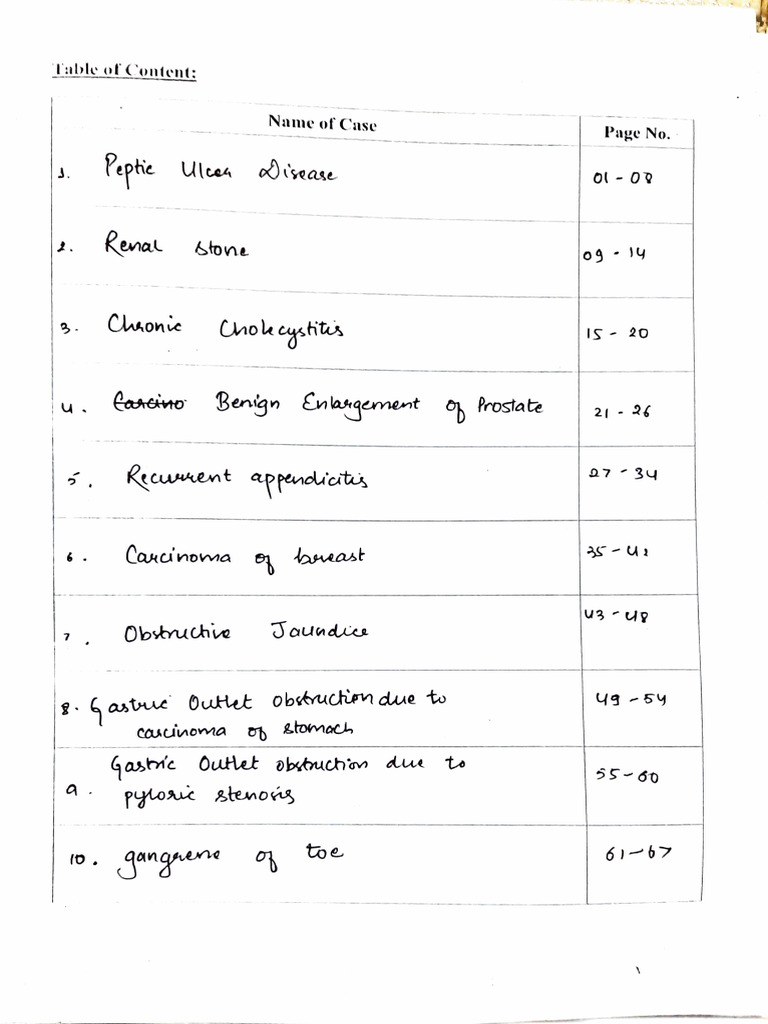 Table of Content:
Name of Case Page No.
1. Peptic Ulcer Disease 01 - 08
2. Renal stone 09 - 14
3. Chronic Cholecystitis 15 - 20
4. Carcino Benign Enlargement of Prostate 21 - 26
5. Recurrent appendicitis 27 - 34
6. Carcinoma of breast 35 - 42
7. Obstructive Jaundice 43 - 48
8. Gastric Outlet obstruction due to 49 - 54
carcinoma of stomach
Gastric Outlet obstruction due to
9. pyloric stenosis 55 - 60
10. gangrene of toe 61 - 67